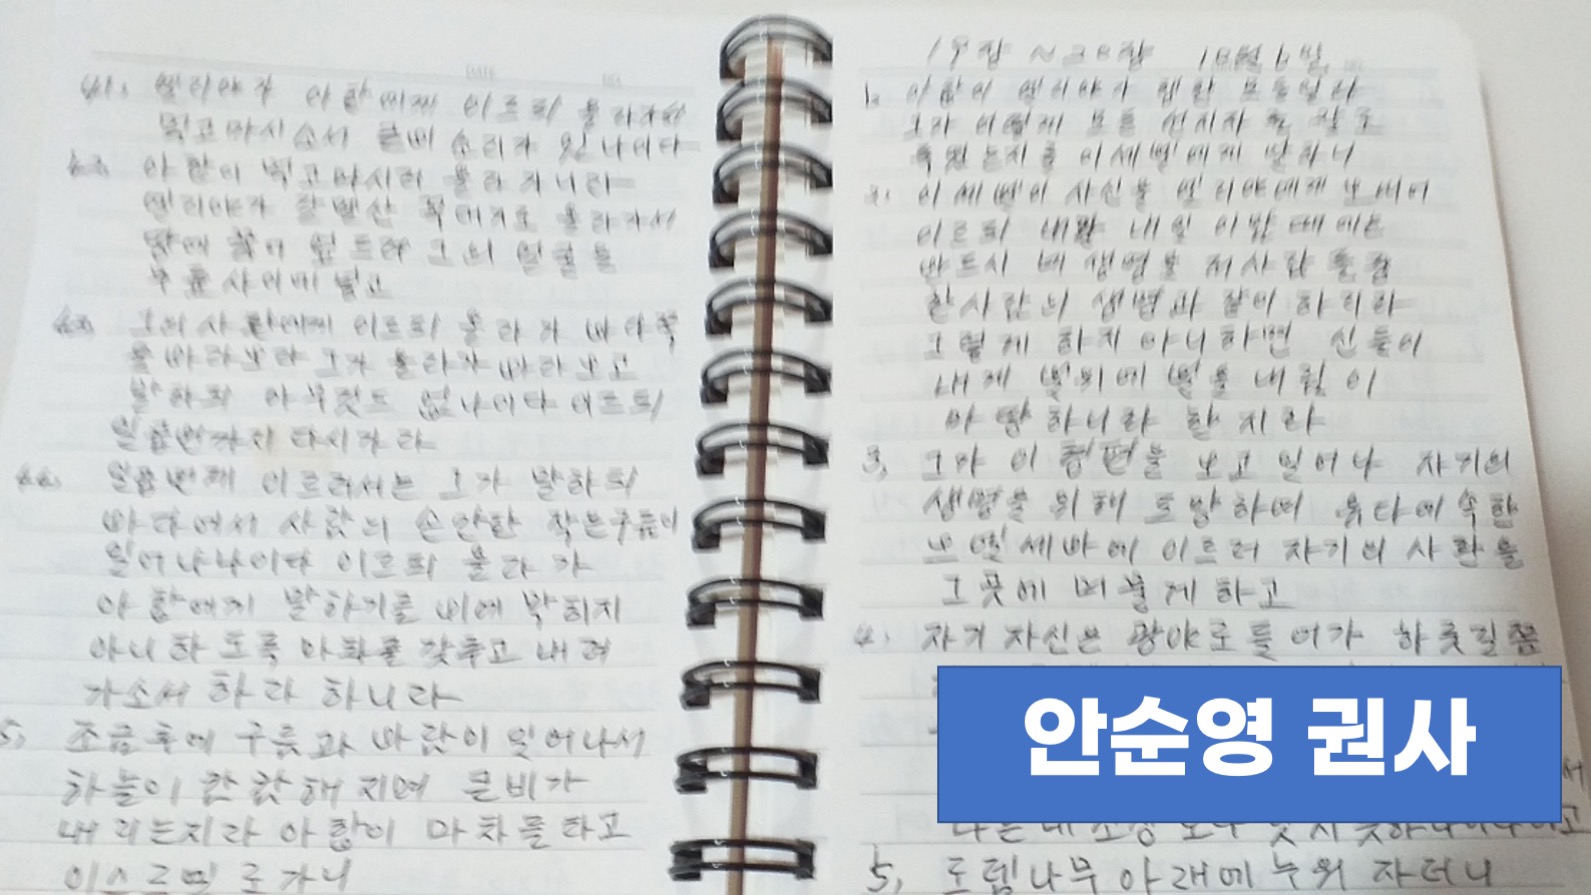 41. 엘리야가 아합에게 이르되 올라가서
먹고 마시소서 큰비 소리가 있나이다
42. 아합이 먹고 마시러 올라가니라
엘리야가 갈멜산 꼭대기로 올라가서
땅에 꿇어 엎드려 그의 얼굴을
무릎 사이에 넣고
43. 그의 사환에게 이르되 올라가 바다쪽
을 바라보라 그가 올라가 바라보고
말하되 아무것도 없나이다 이르되
일곱번까지 다시가라
44. 일곱번째 이르러서는 그가 말하되
바다에서 사람의 손만한 작은구름이
일어나나이다 이르되 올라가
아합에게 말하기를 비에 막히지
아니하도록 마차를 갖추고 내려
가소서 하라 하니라
5, 조금후에 구름과 바람이 일어나서
하늘이 캄캄해 지며 큰비가
내리는지라 아합이 마차를 타고
이스르엘로 가니
19장 ~20장 10월 6일
1. 아합이 엘리야가 행한 모든일과
그가 어떻게 모든 선지자를 칼로
죽였는지를 이세벨에게 말하니
2. 이세벨이 사신을 엘리야에게 보내어
이르되 내가 내일 이맘때에는
반드시 네 생명을 저사람들중
한사람의 생명과 같이 하리라
그렇게 하지 아니하면 신들이
내게 벌위에 벌을 내림이
마땅하니라 한지라
3, 그가 이 형편을 보고 일어나 자기의
생명을 위해 도망하여 유다에 속한
브엘세바에 이르러 자기의 사환을
그곳에 머물게 하고
4. 자기 자신은 광야로 들어가 하룻길쯤
안순영 권사
5, 로뎀나무 아래에 누워 자더니